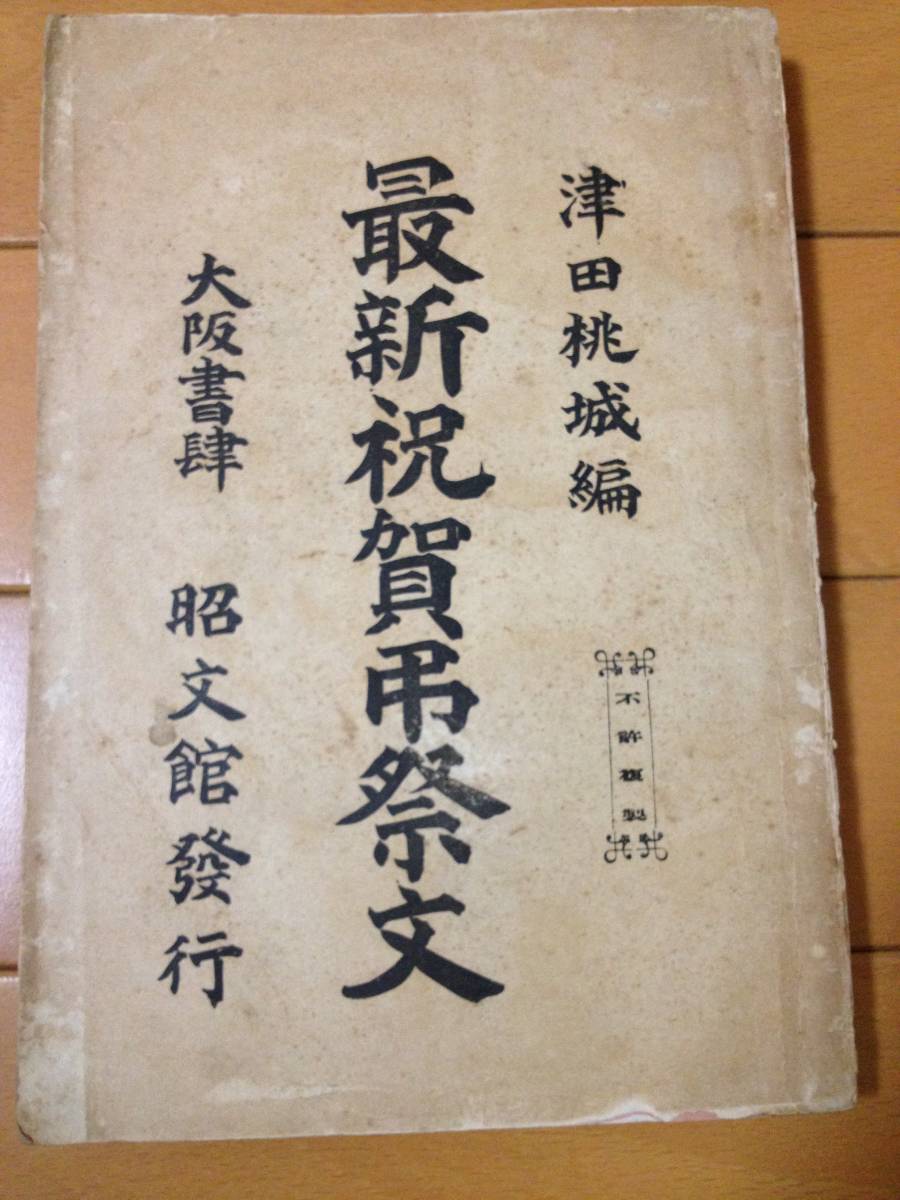 津田桃城編
不許複製
最新祝賀弔祭文
大阪書肆 昭文館發行